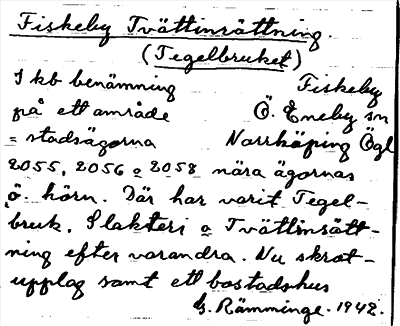 Fiskeby Tvättinrättning.
(Tegelbruket)
I kb benämning Fiskeby
på ett område Ö. Eneby sn
= stadsägorna Norrköping Ögl
2055, 2056 o 2058 nära ägornas
ö. hörn. Där har varit Tegel-
bruk, Slakteri o Tvättinrätt-
ning efter varandra. Nu skrot-
upplag samt ett bostadshus
G. Rämminge. 1942.